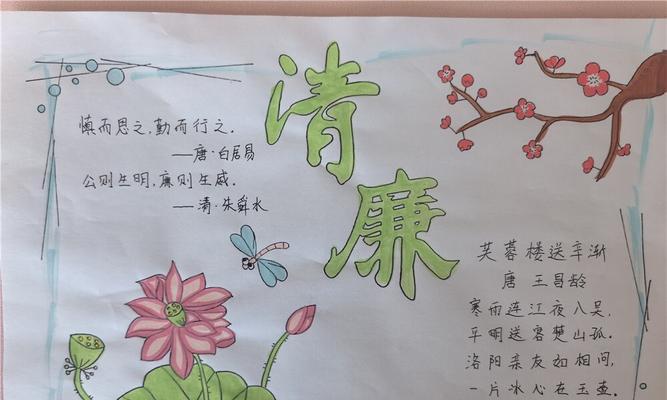 清
廉
慎而思之,勤而行之.
——唐·白居易
公则生明,廉则生威.
——清·朱舜水
芙蓉楼送辛渐
唐 王昌龄
寒雨连江夜入吴,
平明送客楚山孤.
洛阳亲友如相问,
一片冰心在玉壶.